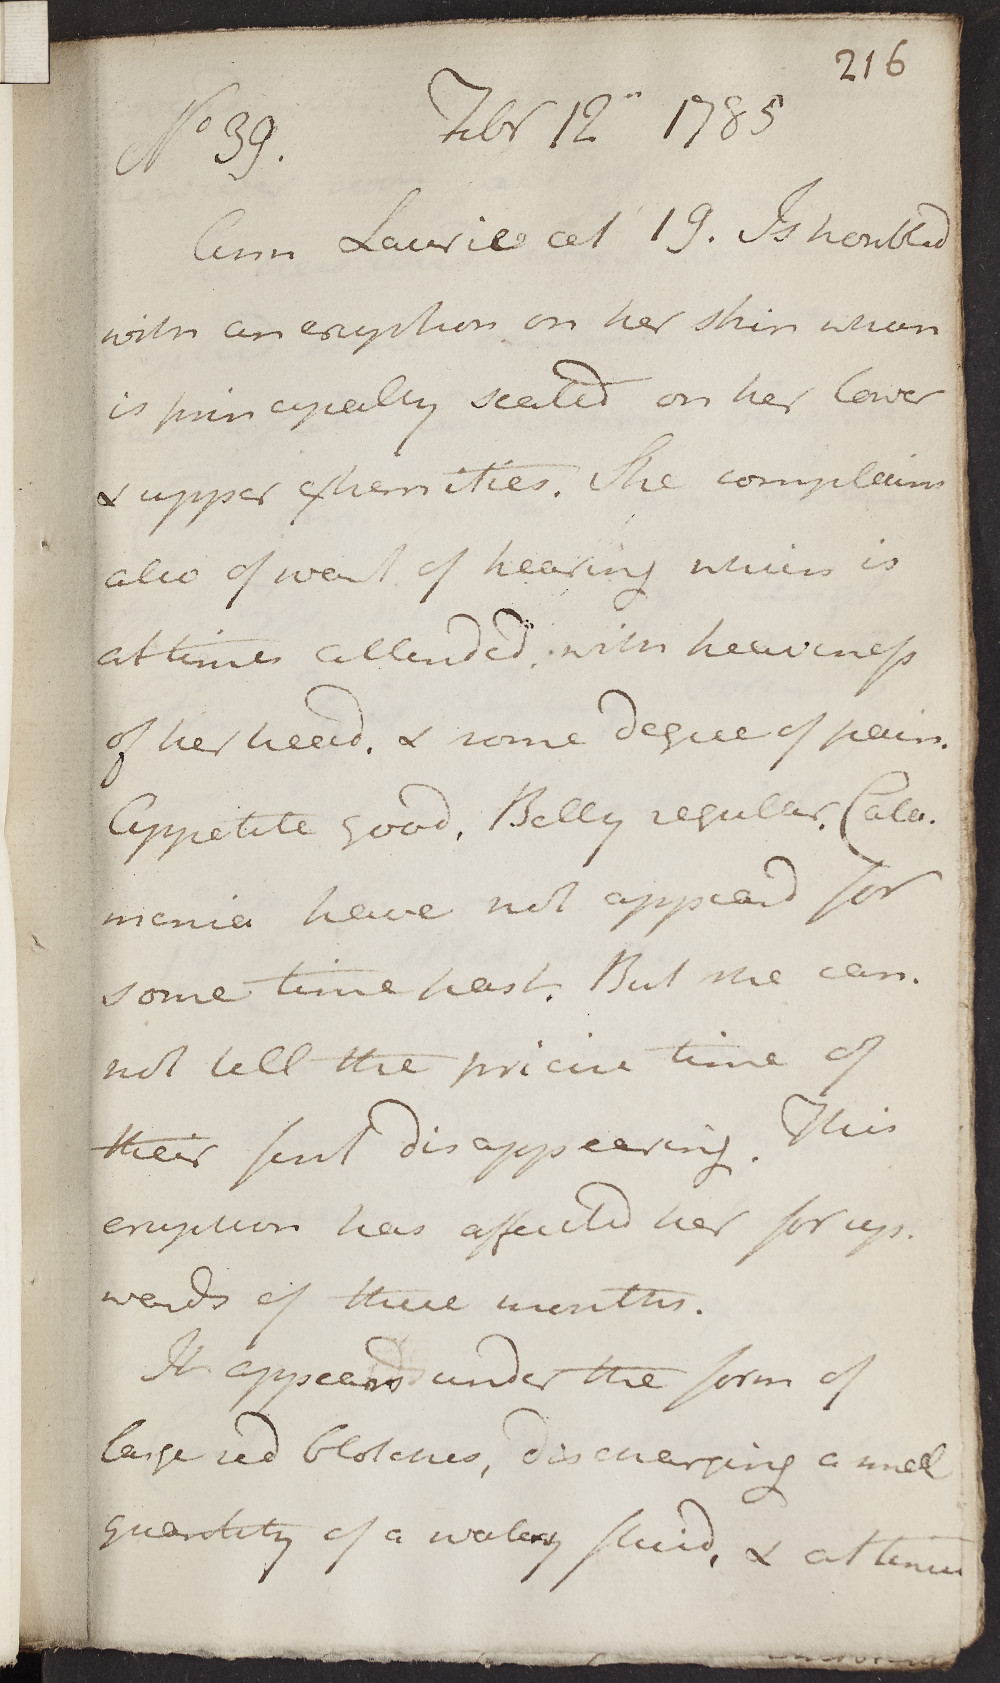 216
No 39. Febr 12" 1785
Ann Laurie aet 19. Is troubled
with an eruption on her skin which
is principally seated on her lower
& upper extremities. She complains
also of want of hearing which is
at times attended with heaviness
of her head. & some degree of pain.
Appetite good. Belly regular. Cata-
menia have not appeard for
some time past. But she can-
not tell the pricise time of
their first disappearing. This
eruption has affected her for up-
wards of three months.
It appears under the form of
large red blotches, discharging a small
quantity of a watery fluid, & at times